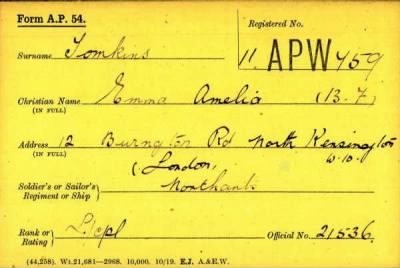 Form A.P. 54.
Registered No.
Surname Tomkins 11. APW 459
Christian Name Emma Amelia (13.7)
(IN FULL)
Address 12 Burngton Rd North Kensington
(IN FULL) W.10.
(London)
Soldier's or Sailor's Northants
Regiment or Ship
Rank or L/Cpl Official No. 21536.
Rating
(44,258). Wt.21,681—2968. 10,000. 10/19. E.J. A.&E.W.